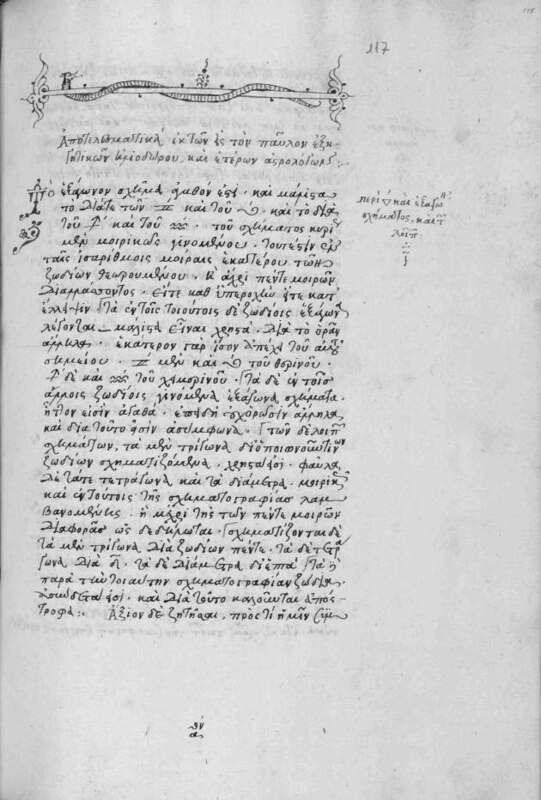 117
Ἀποτελεσματικὰ ἐκ τῶν εἰς τὸν παῦλον ἐξη
γητικῶν ἡλιοδώρου, καὶ ἑτέρων ἀστρολόγων :
Τὸ ἑξάγωνον σχῆμα ἀγαθόν ἐστι · καὶ μάλιστα
τὸ διὰ τε τῶν ♊ καὶ τοῦ ♌ · καὶ τὸ διὰ
τοῦ καὶ τοῦ ♒ · τοῦ σχήματος κυρί
μὲν μοιρικῶς γινομένου · τουτέστιν ἐν
ταῖς ἰσαρίθμοις μοίραις ἑκατέρου τῶν
ζωδίων θεωρουμένου · ἢ ἄχρι πέντε μοιρῶν
διαμαρτάνοντος · εἴτε καθ ὑπεροχὴν εἴτε κατ
ἔλλειψιν τὰ ἐν τοῖς τοιούτοις δὲ ζωδίοις ἑξάγωνα
λέγονται μάλιστα εἶναι χρηστά · διὰ τὸ ὁρᾶν
ἄλληλα · ἑκάτερον γὰρ ἴσον ἀπέχει τοῦ αὐτοῦ
σημείου · ♊ μὲν καὶ ♌ τοῦ θερινοῦ ·
δὲ καὶ ♒ τοῦ χειμερινοῦ · τὰ δὲ ἐν τοῖς
ἄλλοις ζωδίοις γινόμενα ἑξάγωνα σχήματα ·
ἧττον εἰσὶν ἀγαθά · ἐπειδὴ ἄλληλα,
καὶ διὰ τοῦτό εἰσιν ἀσύμφωνα · τῶν δὲ λοιπῶν
σχημάτων, τὰ μὲν τρίγωνα
ζωδίων σχηματιζόμενα · χρηστά εἰσι · φαῦλα
δὲ τά τε τετράγωνα καὶ τὰ διάμετρα · μοιρικῆς
καὶ ἐν τούτοις τῆς σχηματογραφίας λαμ
βανομένης · ἢ μέχρι τῆς τῶν πέντε μοιρῶν
διαφορᾶς ὡς δεδήλωται · σχηματίζονται δὲ
τὰ μὲν τρίγωνα διὰ ζωδίων πέντε · τὰ δὲ τετρά
γωνα διὰ δ · τὰ δὲ διάμετρα δι ἑπτά · τὰ
παρὰ την τοιαύτην σχηματογραφίαν ζώδια
ἀσύνδετά εἰσι · καὶ διὰ τοῦτο καλοῦνται ἀπόσ
τροφα : Ἄξιον δὲ ζητῆσαι, πρὸς τί
περὶ καὶ ἑξαγώ
σχήματος, καὶ τ
λοιπ